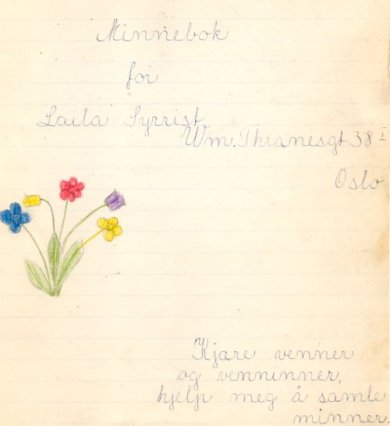 Minnebok
for
Laila Syrrist
Wm. Thranesgt 38 I
Oslo
Kjære venner
og venninner,
hjelp meg å samle
minner.